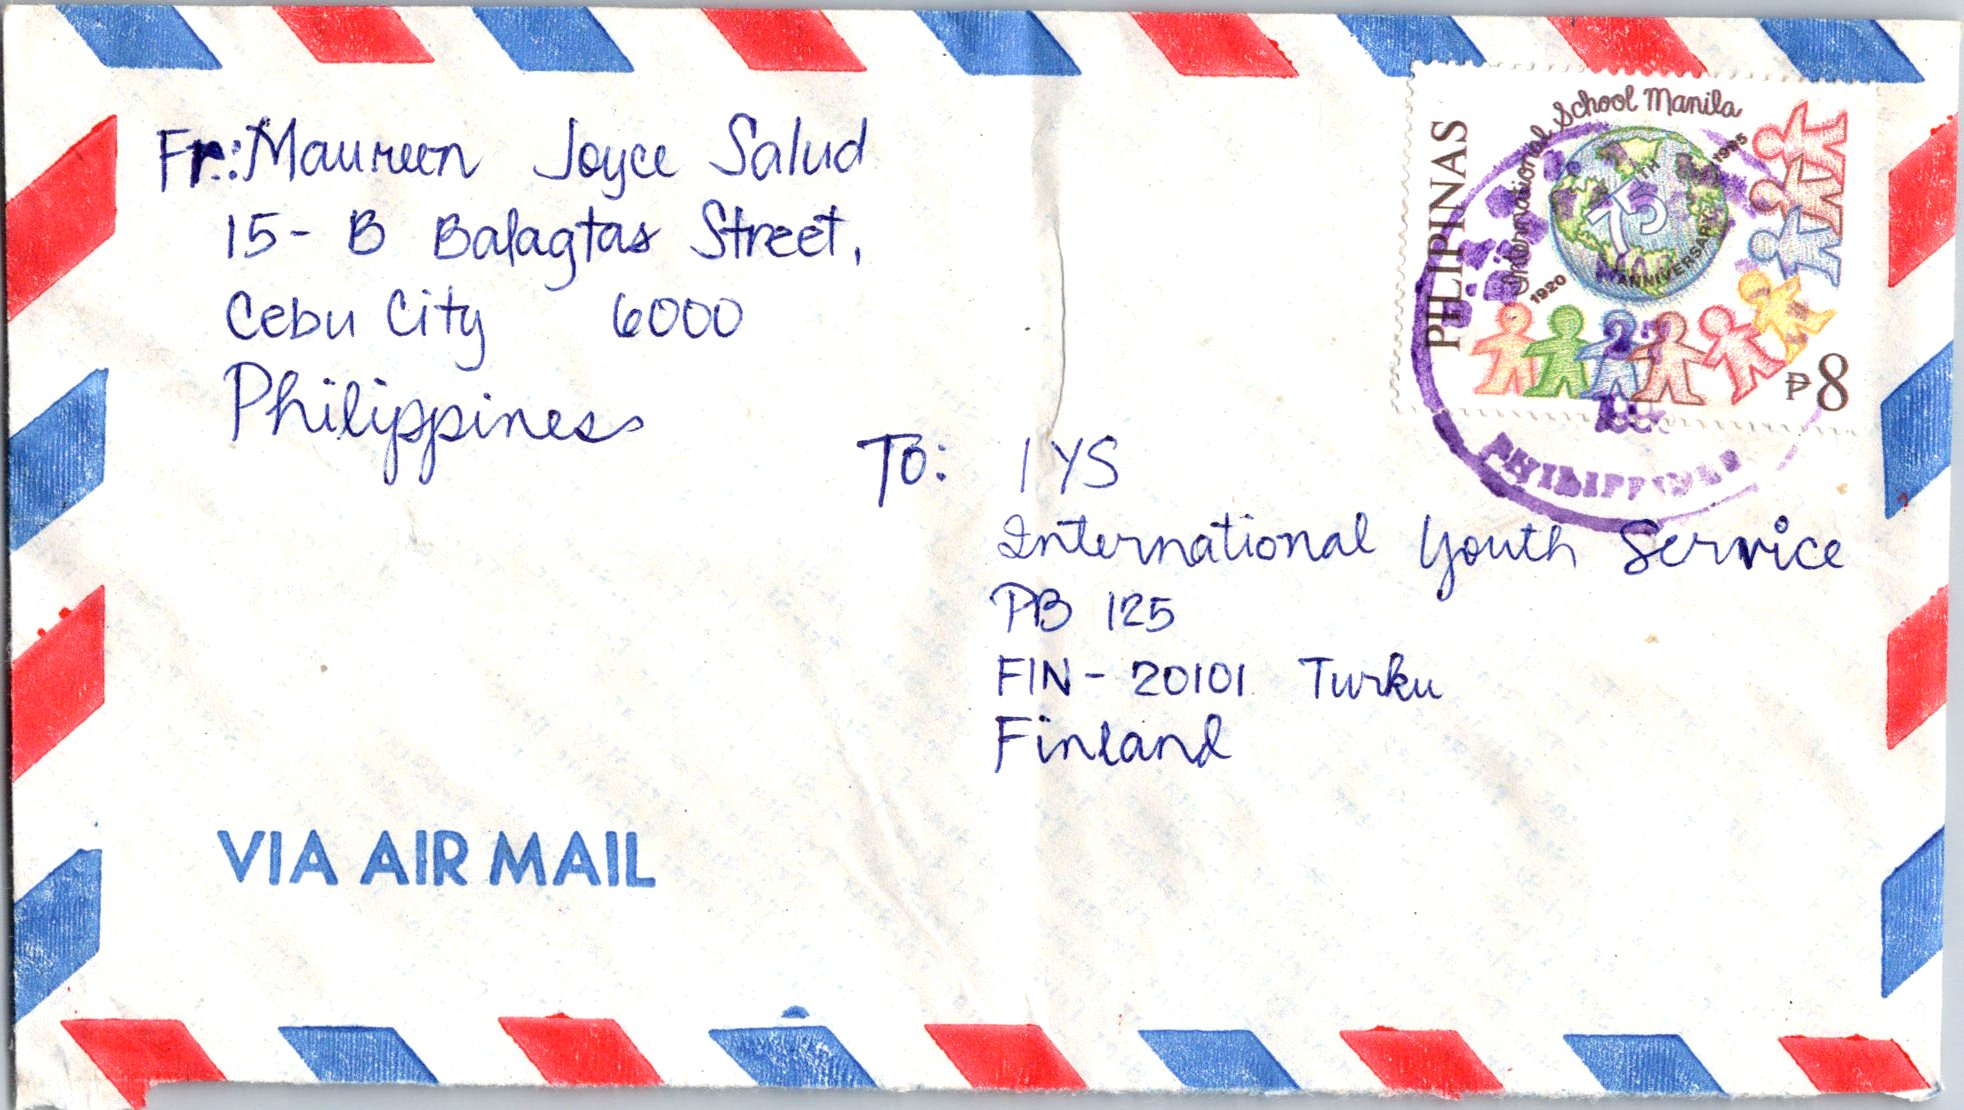 Fr: Maureen Joyce Salud
15-B Balagtas Street,
Cebu City 6000
Philippines
PILIPINAS
International School Manila
1920
75TH
ANNIVERSARY
1995
₱8
PHILIPPINES
To: IYS
International Youth Service
PB 125
FIN-20101 Turku
Finland
VIA AIR MAIL